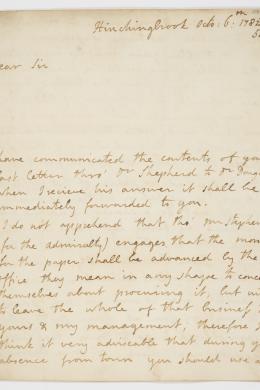 Hinchingbrook Octo: 6.th 178
ear Sir
have communicated the contents of you
last letter thro' Dr Shepherd to Dr
when I recieve his answer it shall be
immediately forwarded to you.
I do not apprehend that tho' Mr Stephen
(for the admiralty) engages that the mon
for the paper shall be advanced by the
office they mean in any shape to conce
themselves about procuring it, but wi
to leave the whole of that business
yours & my management, therefore I
think it very adviseable that during y
absence from town you should use